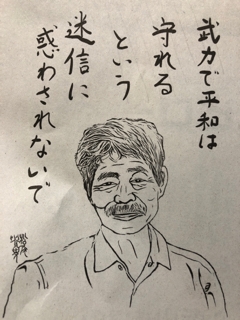 武力で平和は
守れる
という
迷信に
惑わされないで